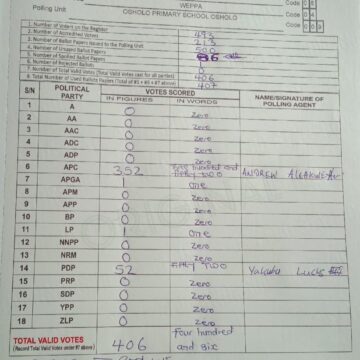 WEPPA
Code
Polling Unit
OSHOLO PRIMARY SCHOOL OSHOLO
Code
Code
1. Number of Voters on the Register
2. Number of Accredited Voters
3. Number of Ballot Papers Issued to the Polling Unit
4. Number of Unused Ballot Papers
5. Number of Spoiled Ballot Papers
6. Number of Rejected Ballots
7. Number of Total Valid Votes (Total Valid votes cast for all parties) 406
8. Total Number of Used Ballots Papers (Total of #5 + #6 + #7 above) 407
S/N POLITICAL PARTY VOTES SCORED NAME/SIGNATURE OF POLLING AGENT
IN FIGURES IN WORDS
1 A 0 Zero
2 AA 0 Zero
3 AAC 0 Zero
4 ADC 0 Zero
5 ADP 0 Zero
6 APC 352 hundred and ANDREW
7 APGA 1 one
8 APM 0 Zero
9 APP 0 Zero
10 BP 0 Zero
11 LP 1 one
12 NNPP 0 Zero
13 NRM 0 Zero
14 PDP 52 Fifty two Yakubu
15 PRP 0 Zero
16 SDP 0 Zero
17 YPP 0 Zero
18 ZLP 0 Zero
TOTAL VALID VOTES 406 Four hundred
(Record Total Valid Votes under #7 above) and six